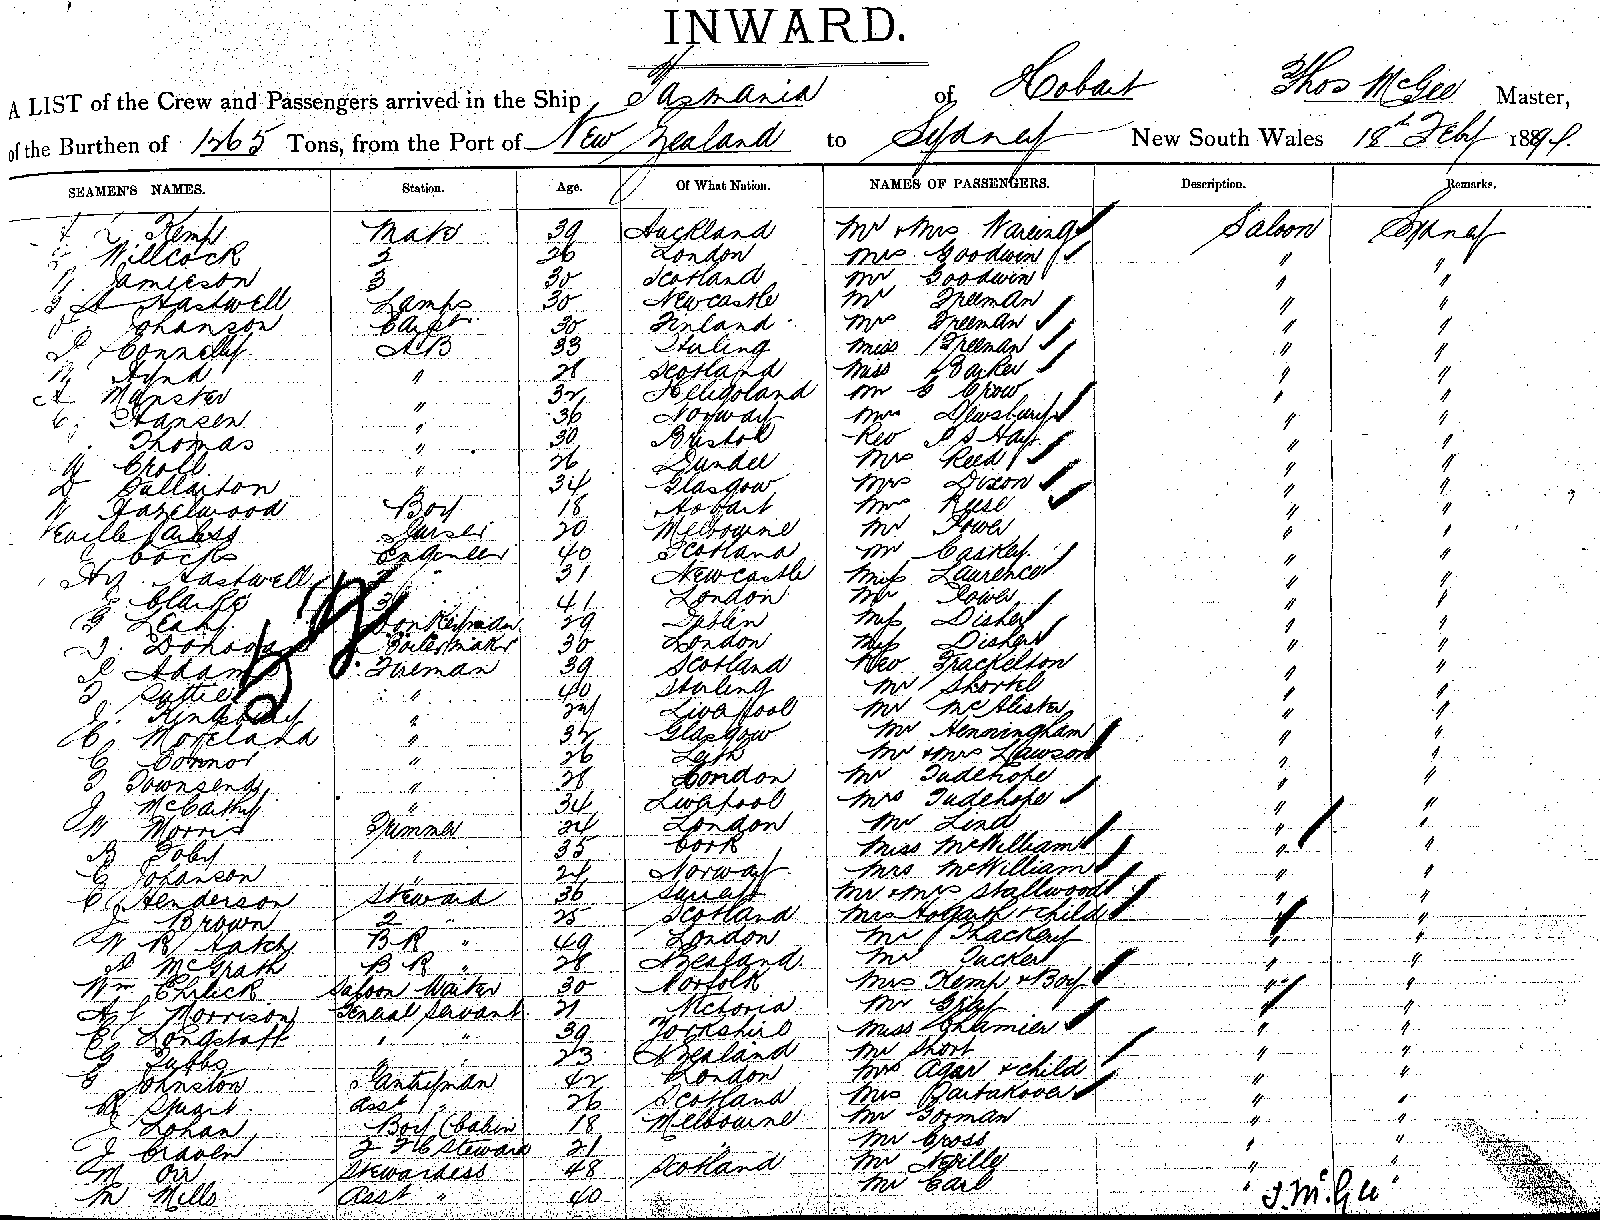 INWARD.
A LIST of the Crew and Passengers arrived in the Ship Tasmania of Hobart Thos McGee Master,
of the Burthen of 1265 Tons, from the Port of New Zealand to Sydney New South Wales 18th Feby 1891.
SEAMEN'S NAMES. Station. Age. Of What Nation. NAMES OF PASSENGERS. Description. Remarks.
Kemp Mate 39 Auckland Mr & Mrs Wareing Saloon Sydney
Willcock 2 26 London Mrs Goodwin " "
Jamieson 3 30 Scotland Mr Goodwin " "
Hastwell Lamps 30 Newcastle Mr Freeman " "
Johanson Carpt 30 Finland Mrs Freeman " "
Connelly AB 33 Stirling Miss Freeman " "
Hynd " 28 Scotland Miss Barker " "
Munster " 32 Heligoland Mr C Crow " "
C. Hansen " 36 Norway Mrs Dewsbury " "
Thomas " 30 Bristol Rev P S Hay " "
Croll " 26 Dundee Mrs Reed " "
D Fullarton " 34 Glasgow Mrs Dixon " "
Hazelwood Boy 18 Hobart Mrs Reese " "
Neville Purser 20 Melbourne Mr Tower " "
Cocks Engineer 40 Scotland Mr Caskey " "
Hy Hastwell 2 " 31 Newcastle Miss Laurence " "
Clarke 3 41 London Mr Power " "
Leah Donkeyman 29 Dublin Miss Disher " "
Donovan Boilermaker 30 London Miss Disher " "
Adams Fireman 39 Scotland Rev Frackelton " "
Suttie " 40 Stirling Mr Shortel " "
J. " 24 Liverpool Mr McAlister " "
Moreland " 32 Glasgow Mr Henningham " "
C Connor " 26 Leith Mr & Mrs Lawson " "
Townsend " 28 London Mr Tudehope " "
J McCarthy " 34 Liverpool Mrs Tudehope " "
W Morris Trimmer 24 London Mr Lind " "
Toby " 35 Cork Miss McWilliam " "
Johanson " 24 Norway Mrs McWilliam " "
C Henderson Steward 36 Surrey Mr & Mrs Stallwood " "
J Brown 2 " 25 Scotland Mrs Hogarth & child " "
W R Hatch BR " 49 London Mr Thackery " "
McGrath BR " 28 N Zealand Mr Tucker " "
Wm Chilick Saloon Waiter 30 Norfolk Mrs Kemp & Boy " "
A J Morrison General Servant 21 Victoria Mr Gray " "
E Longstaff " " 39 Yorkshire Miss Shamier " "
G Tubbs 23 N Zealand Mr Short " "
Johnston Pantryman 42 London Mrs Agar & child " "
R Stuart Asst " 26 Scotland Mrs " "
Lohan Boy (Cabin 18 Melbourne Mr Gorman " "
J Craven 2 Steward 21 " Mr Cross " "
M Orr Stewardess 48 Scotland Mr Neville " "
M Mills Asst " 40 Mr Carl " "
T. McGee